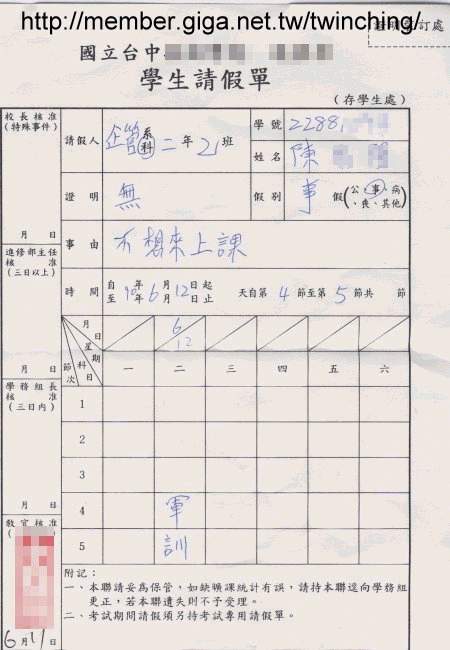 http://member.giga.net.tw/twinching/
訂處
國立台中
學生請假單
(存學生處)
校長核准
(特殊事件)
月 日
進修部主任
核准
(三日以上)
月 日
學務組長
核准
(三日內)
月 日
教官核准
6月11日
請假人 企管系科二年21班
學號 2288
姓名 陳
證明 無
假別 事 假(公、事、病、喪、其他)
事由 不想來上課
時間 自至90年年6月月12日日起止 天自第4節至第5節共 節
月日 星期 科目 節次
6/12
一 二 三 四 五 六
1
2
3
4 軍
5 訓
附記:
一、本聯請妥為保管,如缺曠課統計有誤,請持本聯逕向學務組
更正,若本聯遺失則不予受理。
二、考試期間請假須另持考試專用請假單。